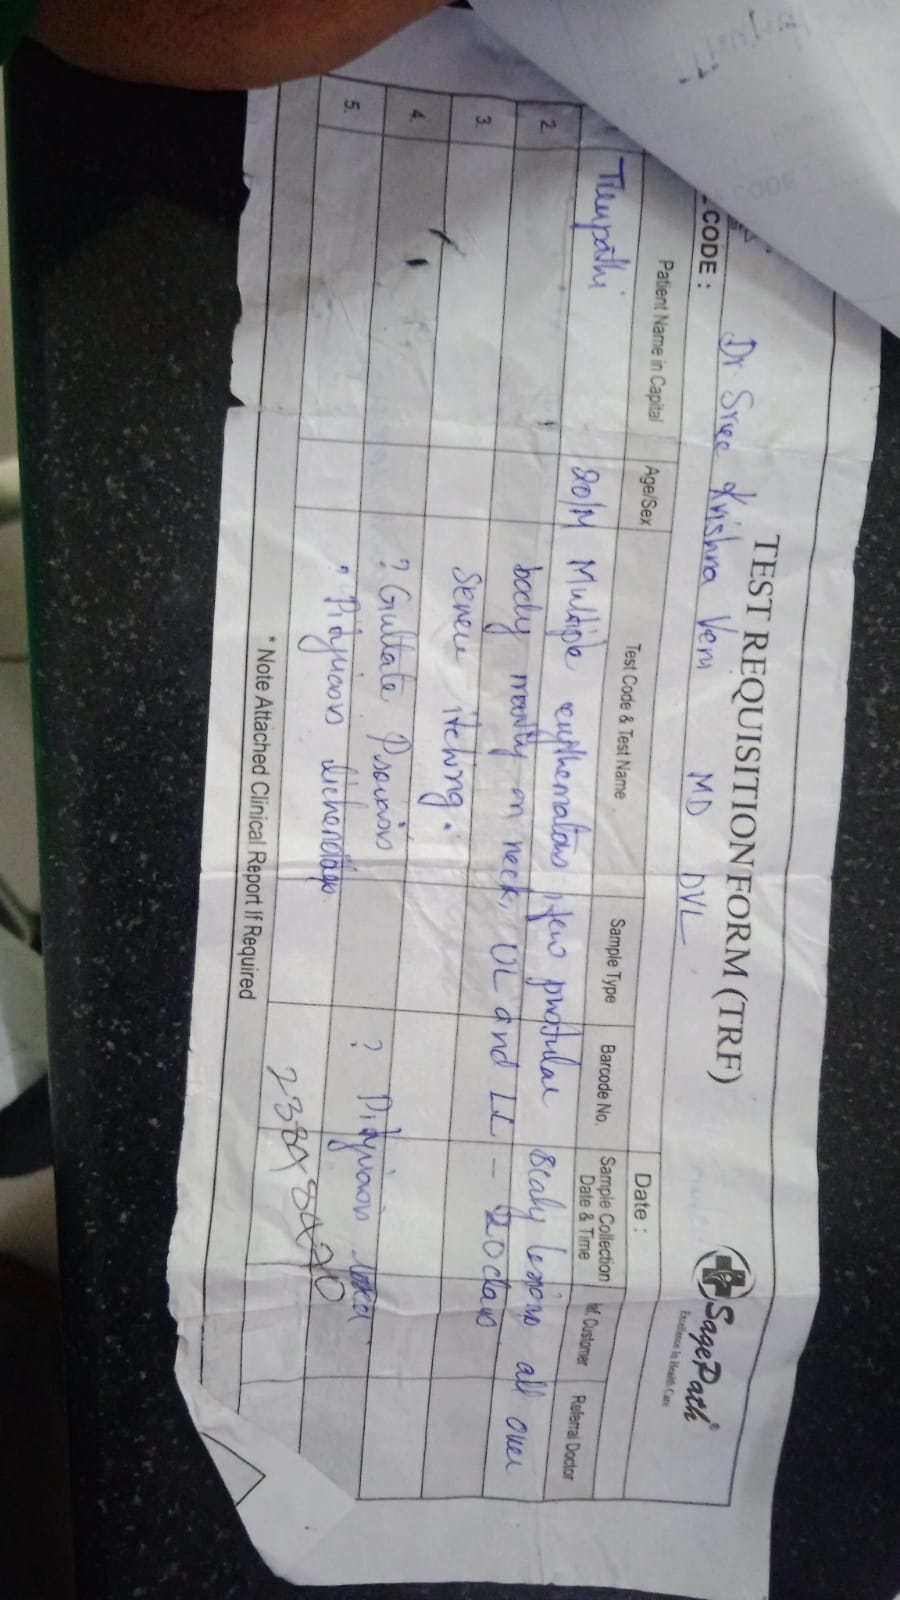 TEST REQUISITION FORM (TRF)
SagePath®
Excellence In Health Care
CODE :
Dr. Sree Krishna Veni MD DVL
Date :
Patient Name in Capital
Age/Sex
Test Code & Test Name
Sample Type
Barcode No.
Sample Collection
Date & Time
Ref. Customer
Referral Doctor
Tirupathi 20/M Multiple erythematous, few pustular scaly lesions all over
2. body mostly on neck, UL and LL - 20 days
3. itching.
4. ? Guttate Psoriasis ? Pityriasis
5. ? Pityriasis lichenoides
* Note Attached Clinical Report If Required